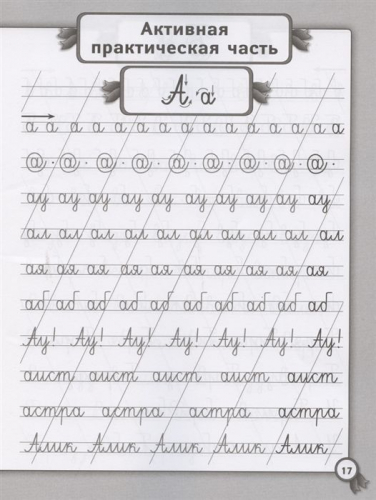 Активная
практическая часть
А а
а а а а а а а а а а а а а а а
@ · @ · @ · @ · @ · @ · @ · @ ·
ау ау ау ау ау ау ау ау ау ау
ал ал ал ал ал ал ал ал ал ал
ая ая ая ая ая ая ая ая ая ая
аб аб аб аб аб аб аб аб аб аб
Ау! Ау! Ау! Ау! Ау! Ау! Ау!
аист аист аист аист аист
астра астра астра астра
Алик Алик Алик Алик Алик
17